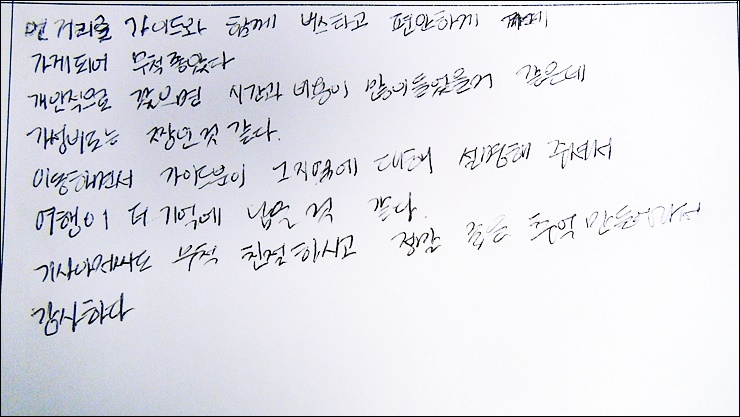 먼 거리를 가이드와 함께 버스타고 편안하게
가게되어 무척 좋았다
개인적으로 갔으면 시간과 비용이 많이 들었을거 같은데
가성비도는 짱인것 같다.
이동하면서 가이드분이 그지역에 대해 설명해 주셔서
여행이 더 기억에 남을 것 같다.
기사아저씨도 무척 친절하시고 정말 좋은 추억 만들어가서
감사하다